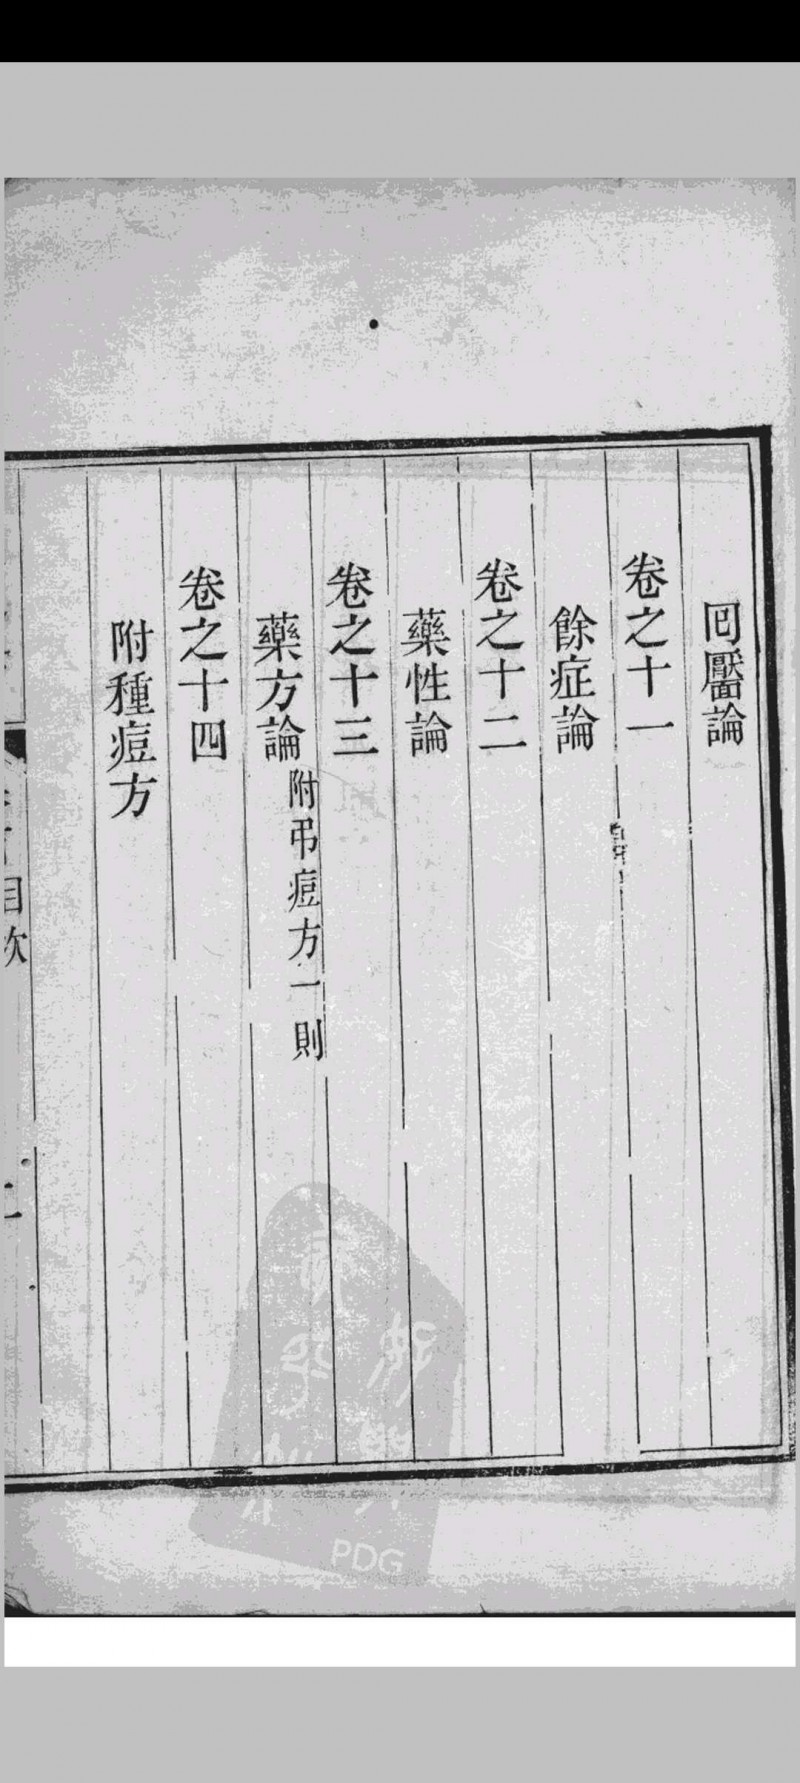 囘靨論
卷之十一
餘症論
卷之十二
藥性論
卷之十三
藥方論附弔痘方一則
卷之十四
附種痘方
目次
二
PDG